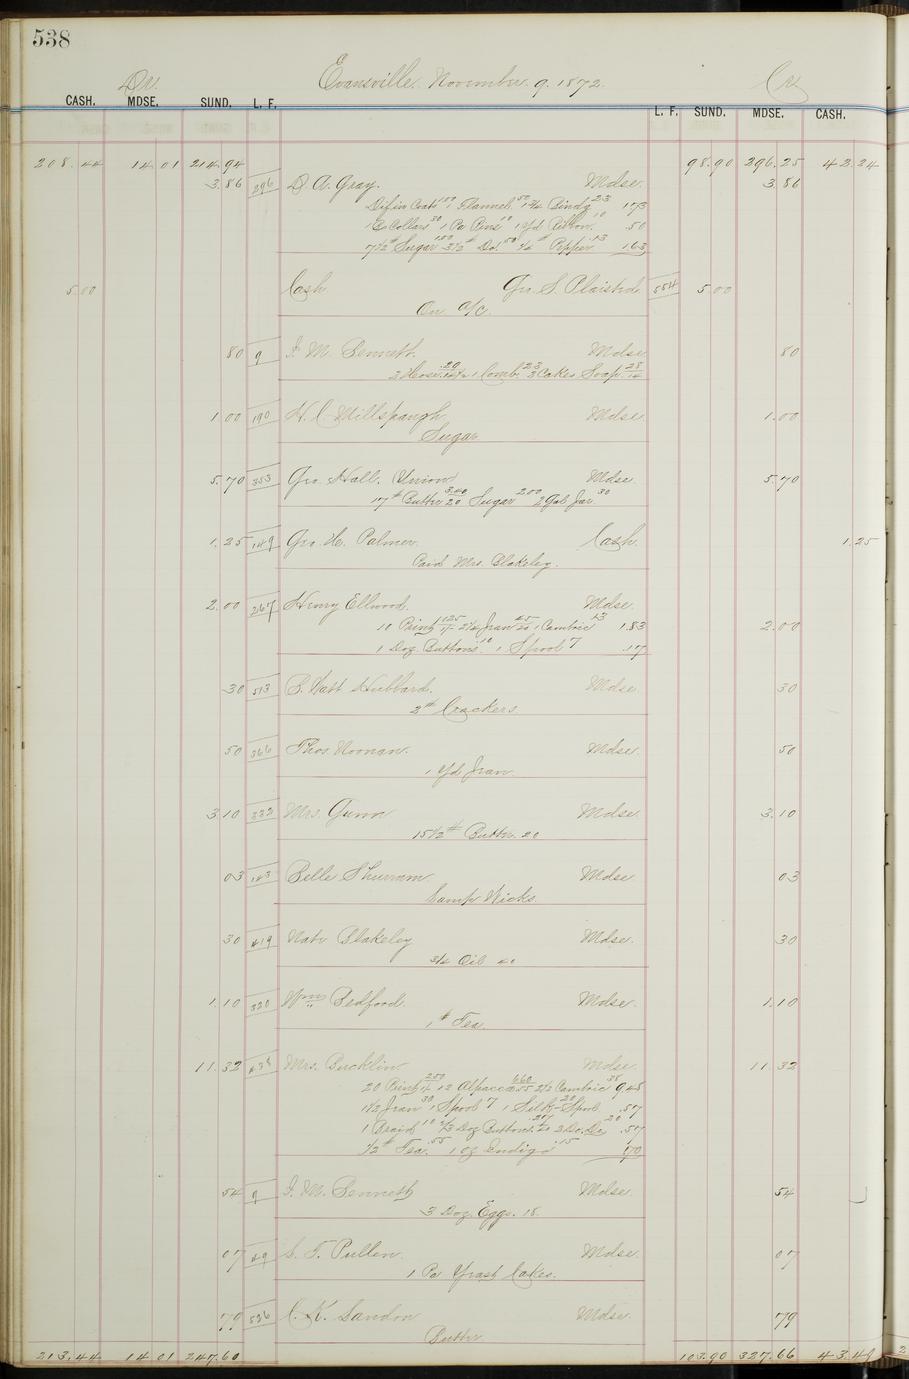 538
Dr. Evansville November 9. 1872. Cr
CASH. MDSE. SUND. L. F. L. F. SUND. MDSE. CASH.
208.44 14.01 214.94 98.90 296.25 42.24
3.86 296 D. A. Gray. Mdse. 3.86
Coat 100 1 Flannel 50 Bindg 23 1 73
Collars 30 1 Pa Pins 10 1 yd Ribbon. 10 50
7 1/2 # Sugar 100 3 1/2 # Do. 50 1/4 # Pepper .13 1.63
5.00 Cash Geo. S. Plaisted 554 5.00
On a/c
80 9 I. M. Bennett. Mdse 80
2 Hose .20 1 Comb 23 2 Cakes Soap 28/14
1.00 190 H. C. Millspaugh Mdse. 1.00
Sugar
5.70 353 Geo. Hall. Union Mdse 5.70
17 # Butter 3.40/20 Sugar 2.00 2 Gal Jar 30
1.25 149 Geo. H. Palmer. Cash. 1.25
Paid Mrs. Blakeley.
2.00 267 Henry Ellwood. Mdse. 2.00
10 Print 1 25 2 1/4 Jean 45/20 1 Cambric 13 1.83
1 Doz Buttons 10 1 Spool 7 .17
30 513 P. Watt Hubbard. Mdse. 30
2 # Crackers
50 366 Thos. Noonan. Mdse. 50
1 yd Jean
3.10 332 Mrs. Gunn Mdse. 3.10
15 1/2 # Butter. 20
03 143 Belle Shurrum Mdse. 03
Lamp Wicks
30 419 Nate Blakeley Mdse. 30
3/4 Oil 40
1.10 320 Wm Bedford. Mdse. 1.10
1 # Tea.
11.32 Mrs. Bucklin Mdse. 11.32
20 Print 2 50 12 Alpacca 6 60/55 2 1/2 Cambric 38 9.48
1 1/2 Jean 30 1 Spool 7 1 Silk Spool 20 .57
1 Braid 10 1/3 Doz Buttons .27 2 Do. Do 20 .57
1/2 # Tea. .55 1 oz Indigo .15 .70
54 9 I. M. Bennett Mdse. 54
3 Doz. Eggs. 18.
07 49 S. T. Pullen. Mdse. 07
1 Pa Yeast Cakes.
79 526 C. K. Landon Mdse. 79
Butter
213.44 14.01 247.60 103.90 327.66 43.49